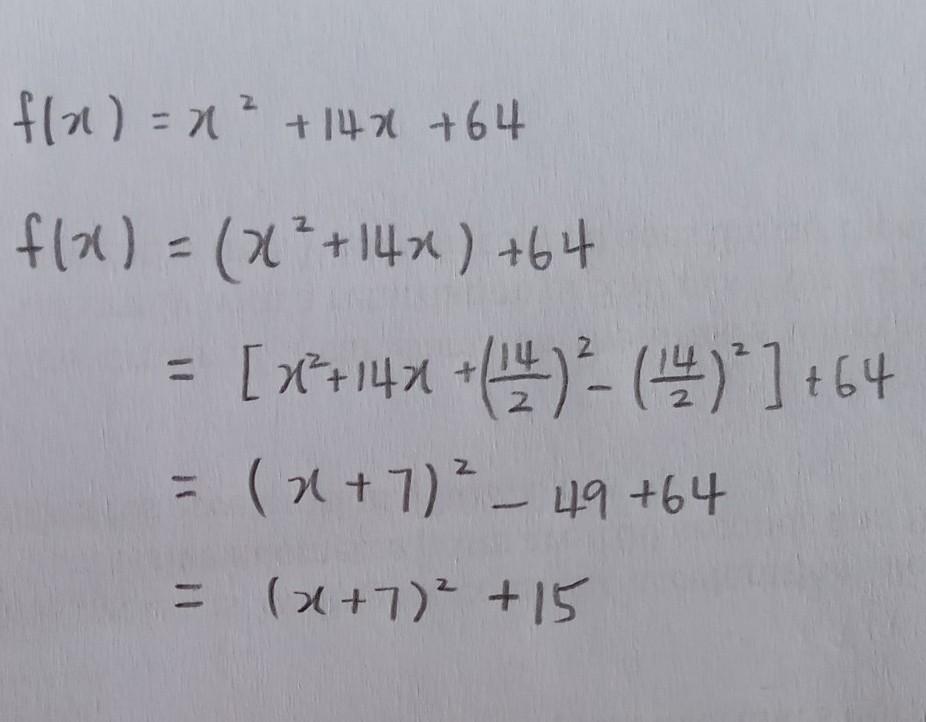 f(x) = x² + 14x + 64
f(x) = (x² + 14x) + 64
= [x² + 14x + (14/2)² - (14/2)²] + 64
= (x + 7)² - 49 + 64
= (x + 7)² + 15